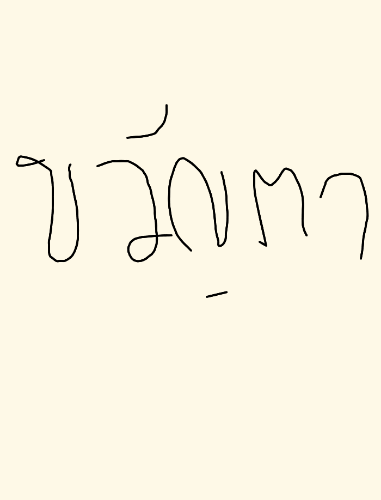 ขวัญตา